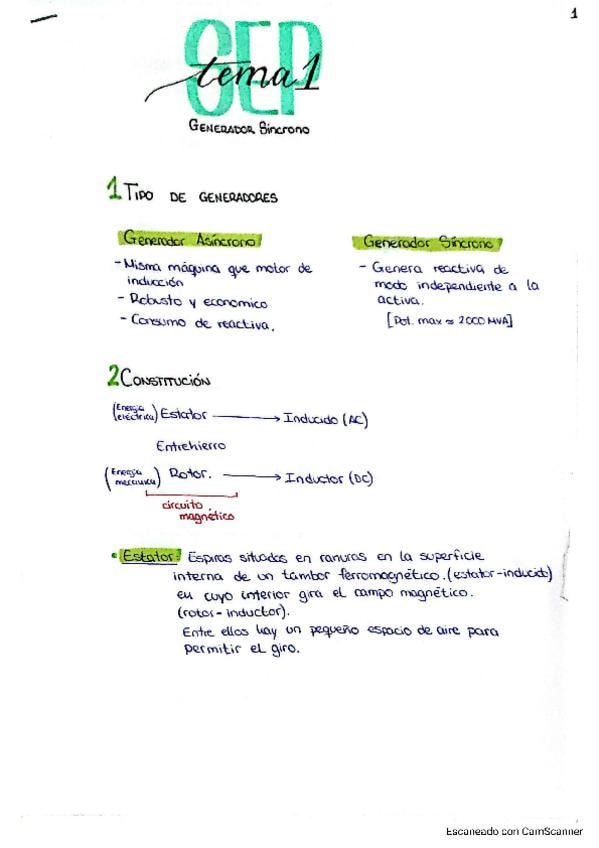 1
SEP
tema 1
GENERADOR Síncrono
1 TIPO DE GENERADORES
Generador Asíncrono
- Misma máquina que motor de
inducción
- Robusto y economico
- Consumo de reactiva.
Generador Síncrono
- Genera reactiva de
modo independiente a la
activa.
[Pot. max ≈ 2000 MVA]
2 CONSTITUCIÓN
(Energía eléctrica) Estator → Inducido (AC)
Entrehierro
(Energía mecánica) Rotor. → Inductor (DC)
circuito
magnético
• Estator: Espiras situadas en ranuras en la superficie
interna de un tambor ferromagnético. (estator-inducido)
en cuyo interior gira el campo magnético.
(rotor-inductor).
Entre ellos hay un pequeño espacio de aire para
permitir el giro.
Escaneado con CamScanner